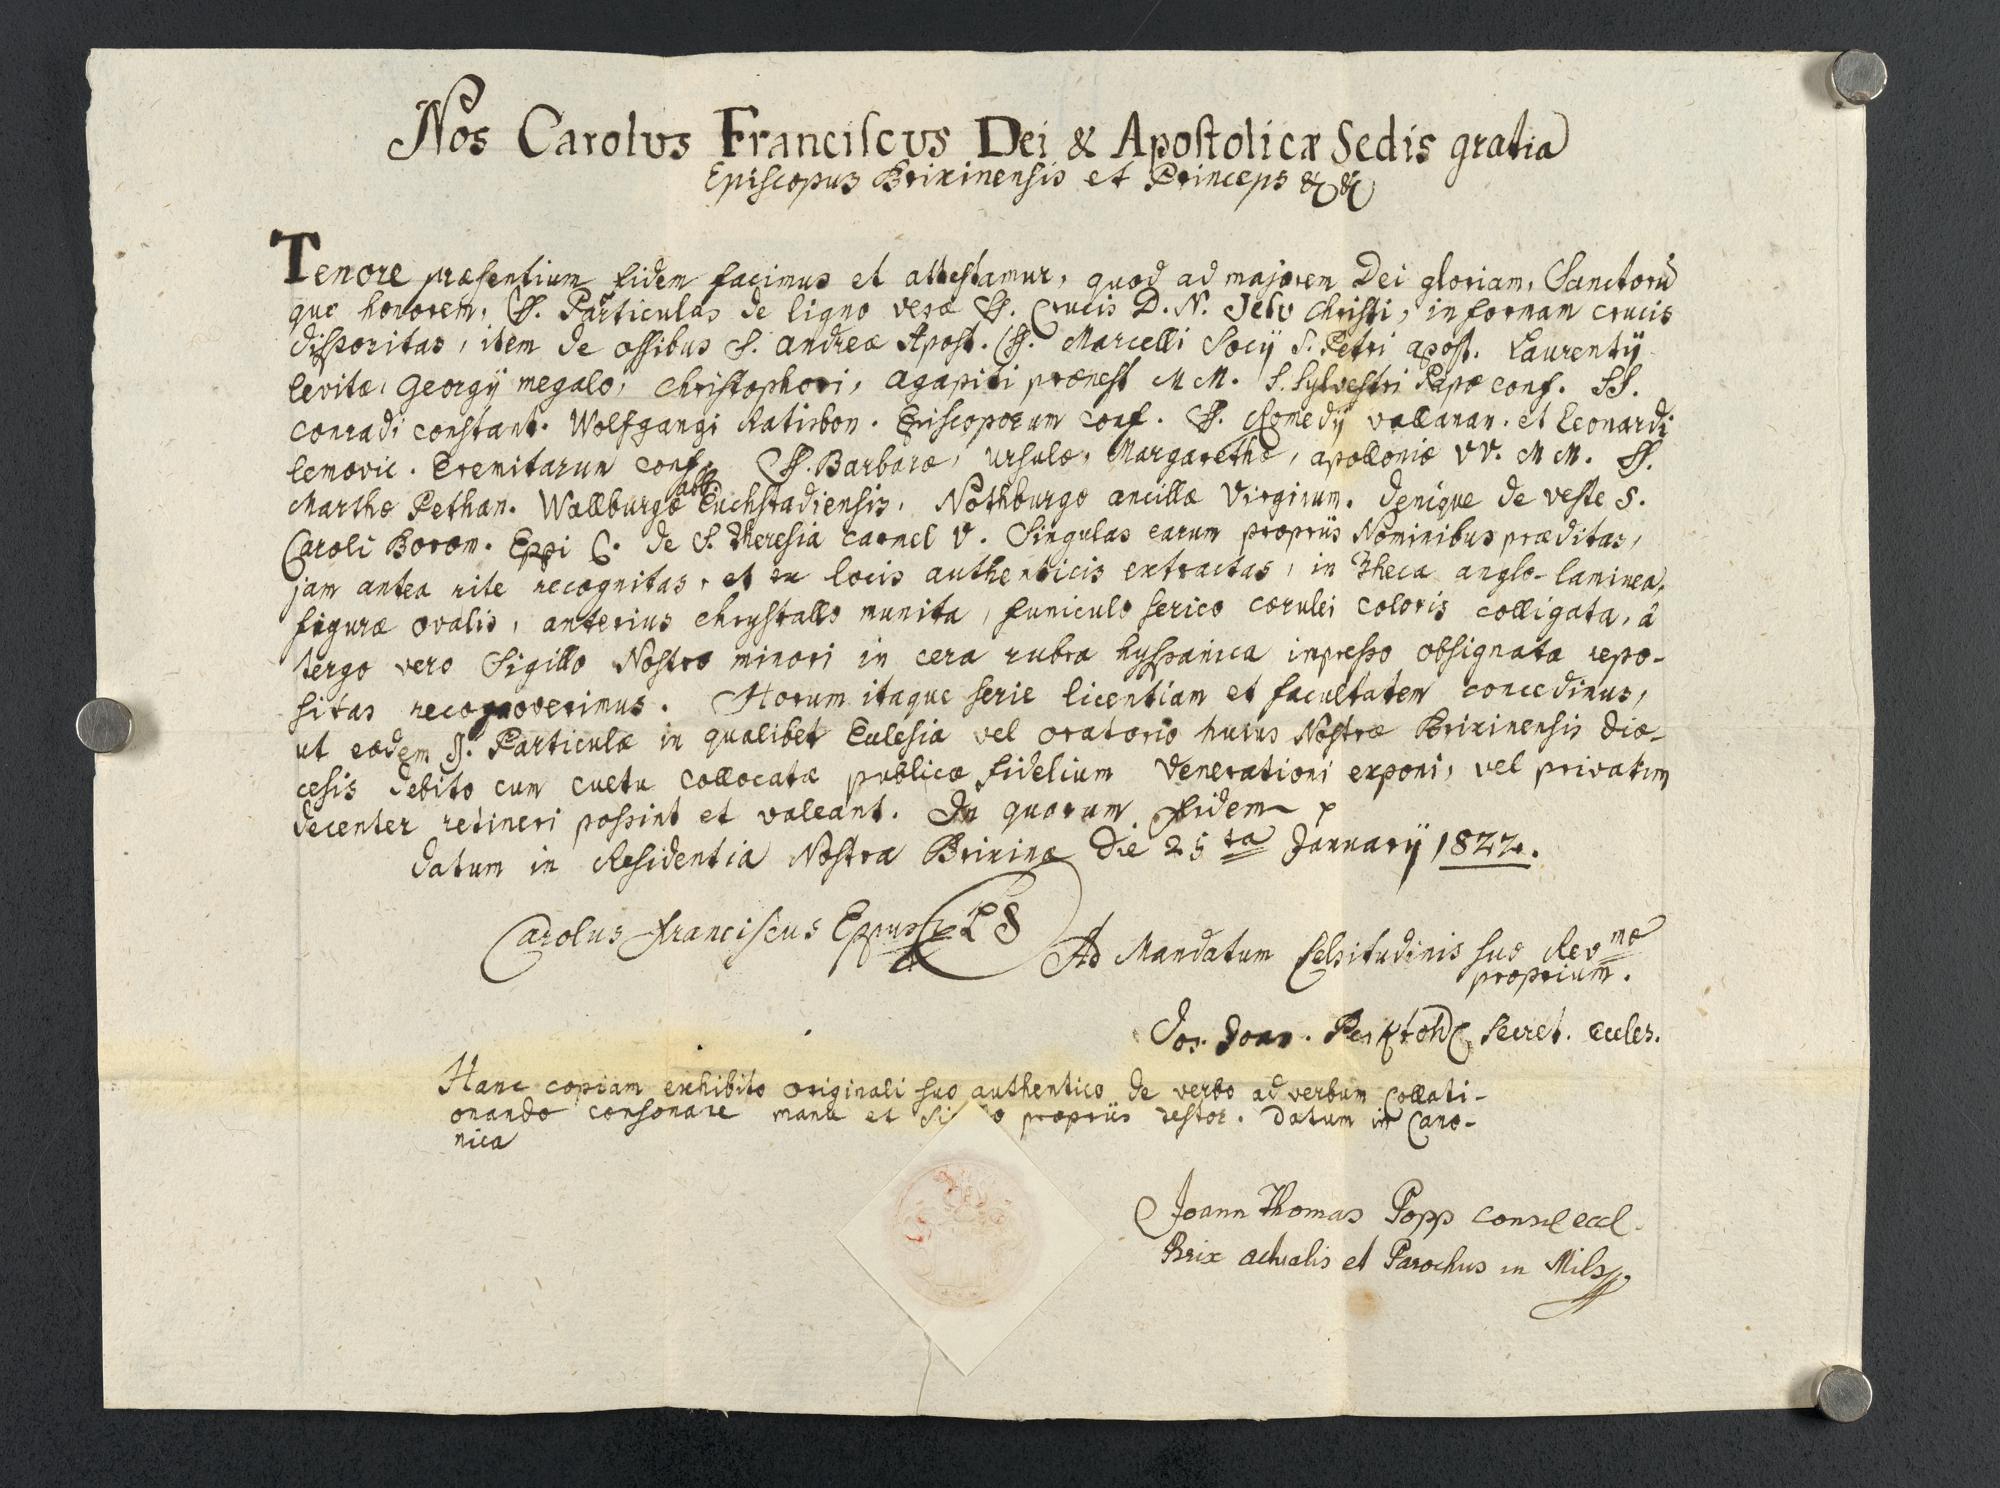 Nos Carolvs Franciscvs Dei & Apostolicæ Sedis gratia
Episcopus Brixinensis et Princeps &c &c
Tenore præsentium fidem facimus et attestamur, quod ad majorem Dei gloriam, Sanctorũ
que honorem, SS. Particulas de ligno veræ SS. Crucis D. N. Jesv Christi, in formam crucis
dispositas, item de ossibus S. Andreæ Apost. SS. Marcelli Socij S. Petri apost. Laurentij
levitæ, Georgij megalo, Christophori, Agapiti prænest M M. S. Sylvestri Papæ conf. SS.
Conradi constant. Wolfgangi Ratisbon. Episcoporum conf. SS. Romedij vallanan. et Leonardi
lemovic. Eremitarum conf. SS. Barbaræ, Ursulæ, Margarethæ, apolloniæ VV. M M. SS.
Marthæ Bethan. Wallburgæ abb. Euchstadiensis, Nothburgæ ancillæ Virginum. denique de veste S.
Caroli Borom. Eppi C. de S. Theresia carmel V. Singulas earum propriis Nominibus præditas,
jam antea rite recognitas, et ex locis authenticis extractas, in Theca anglo-laminea,
figuræ ovalis, anterius chrystallo munita, funiculo serico cœrulei coloris colligata, â
tergo vero Sigillo Nostro minori in cera rubra hyspanica impresso obsignata repo-
sitas recognoverimus. Horum itaque serie licentiam et facultatem concedimus,
ut eædem S. Particulæ in qualibet Ecclesia vel oratorio huius Nostræ Brixinensis diœ-
cesis debito cum cultu collocatæ publicæ fidelium Venerationi exponi, vel privatim
decenter retineri possint et valeant. In quorum fidem
datum in Residentia Nostra Brixinæ Die 25ta Januarij 1822.
Carolus Franciscus Eppus L S
Ad Mandatum Celsitudinis suæ Revmæ
proprium.
Jos. Joan. secret. eccles.
Hanc copiam exhibito originali suo authentico de verbo ad verbum collati-
onando consonare manu et propriis testor. Datum in Cano-
nica
Joann Thomas Popp consil eccl.
Brix actualis et Parochus in Mils